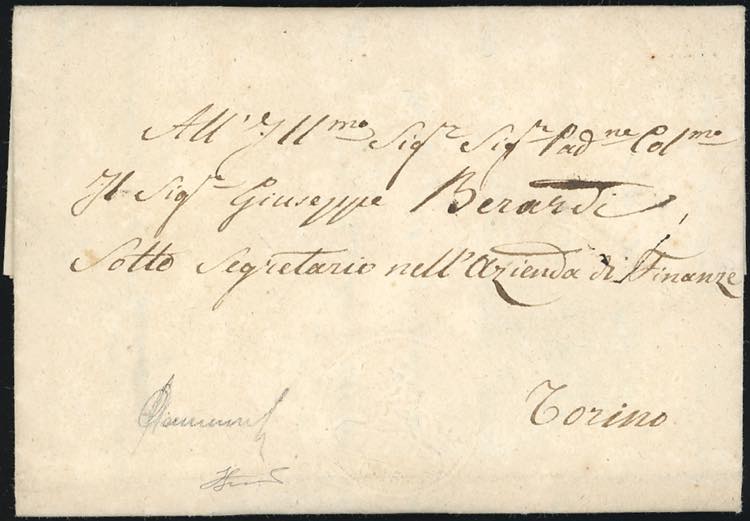 All' Ill.mo Sig.r Sig.r Pad.ne Col.mo
Il Sig.r Giuseppe Berardi,
Sotto Segretario nell'Azienda di Finanze
Torino